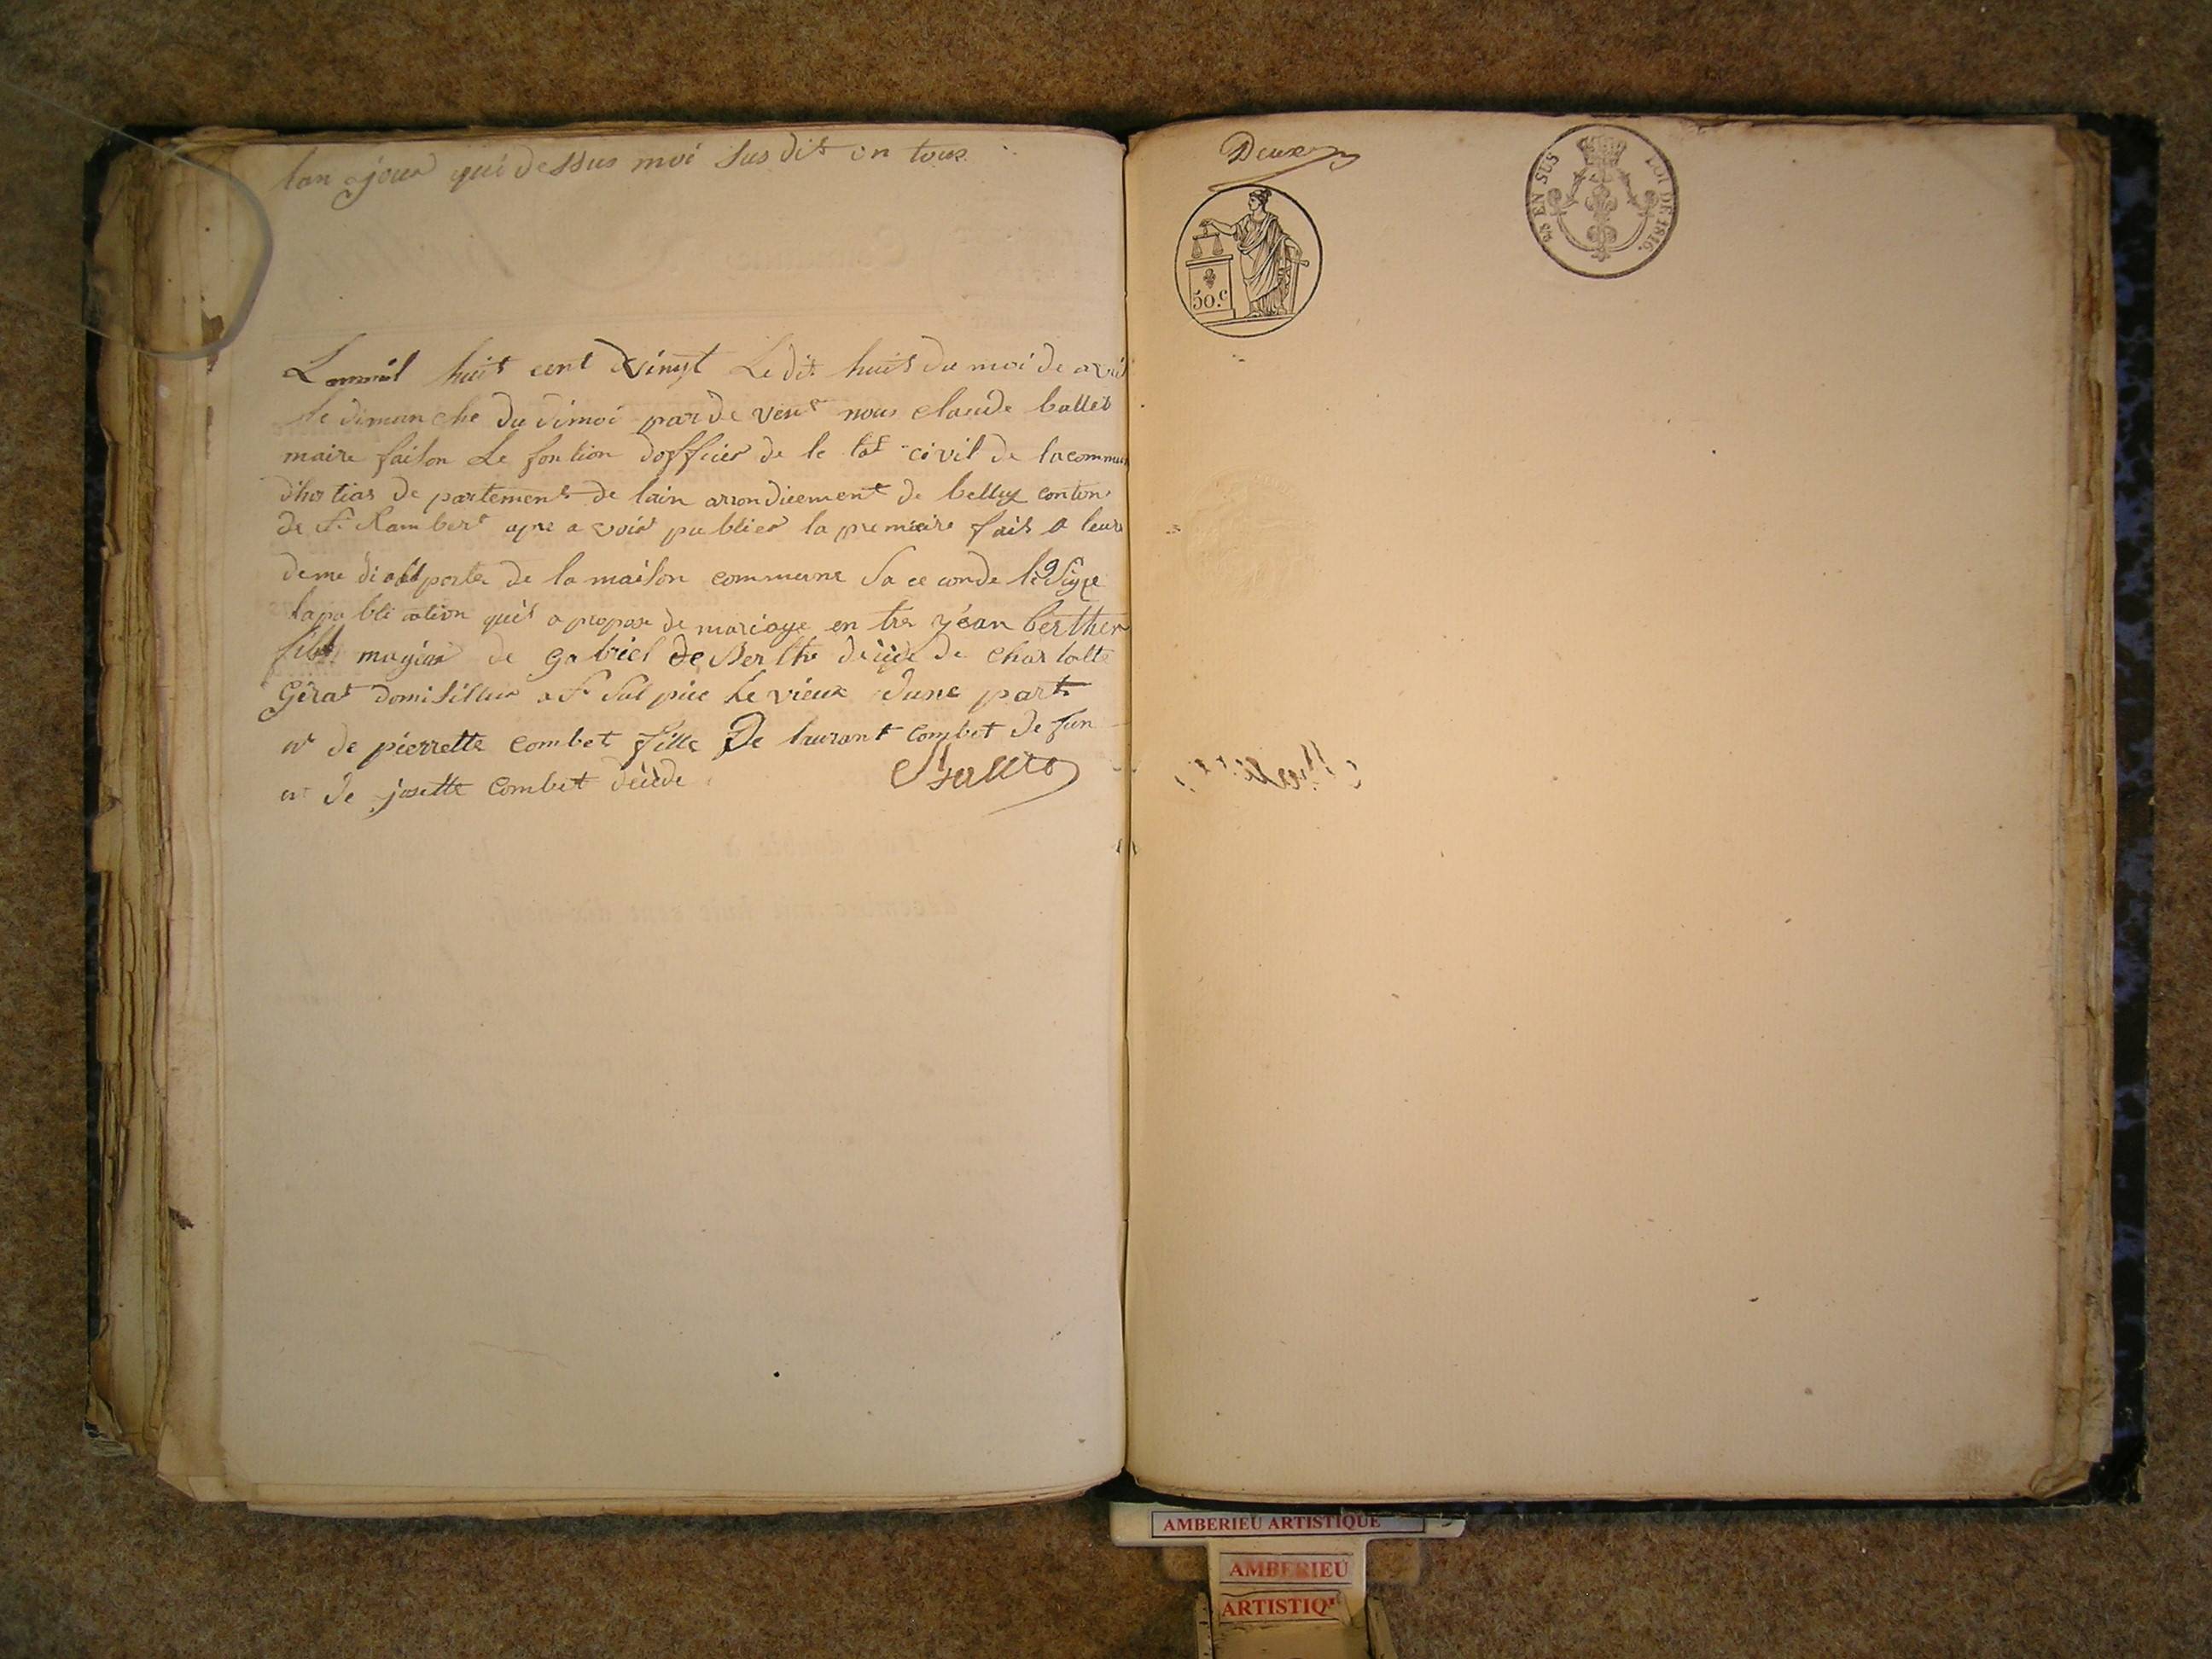 lan ejour qui dessus moi sus dit on tous
Lanmil huit cent vingt Le dit huit du moi de avril
le dimanche du dimoi par de vent nous claude ballet
maire faison Le fontion dofficier de le tat civil de lacommun
dhostias de partement de lain arrondicement de belley conton
de St Rambert apre avoir publier la premiaire fais a leure
deme di alporte de la maison commune sa ce conde
lapublication quit a propose de mariage en tre yéan berther
fils magior de gabriel de Berthe décéde de charlotte
Gérat domisillier a St Sulpice Le vieux dune part
et de pierrette combet fille De laurant Combet de fun
et de josette Combet décéde
Ballet
Deux
50.c
EN SUS
LOI DE 1816.
AMBERIEU ARTISTIQUE
AMBERIEU
ARTISTIQ